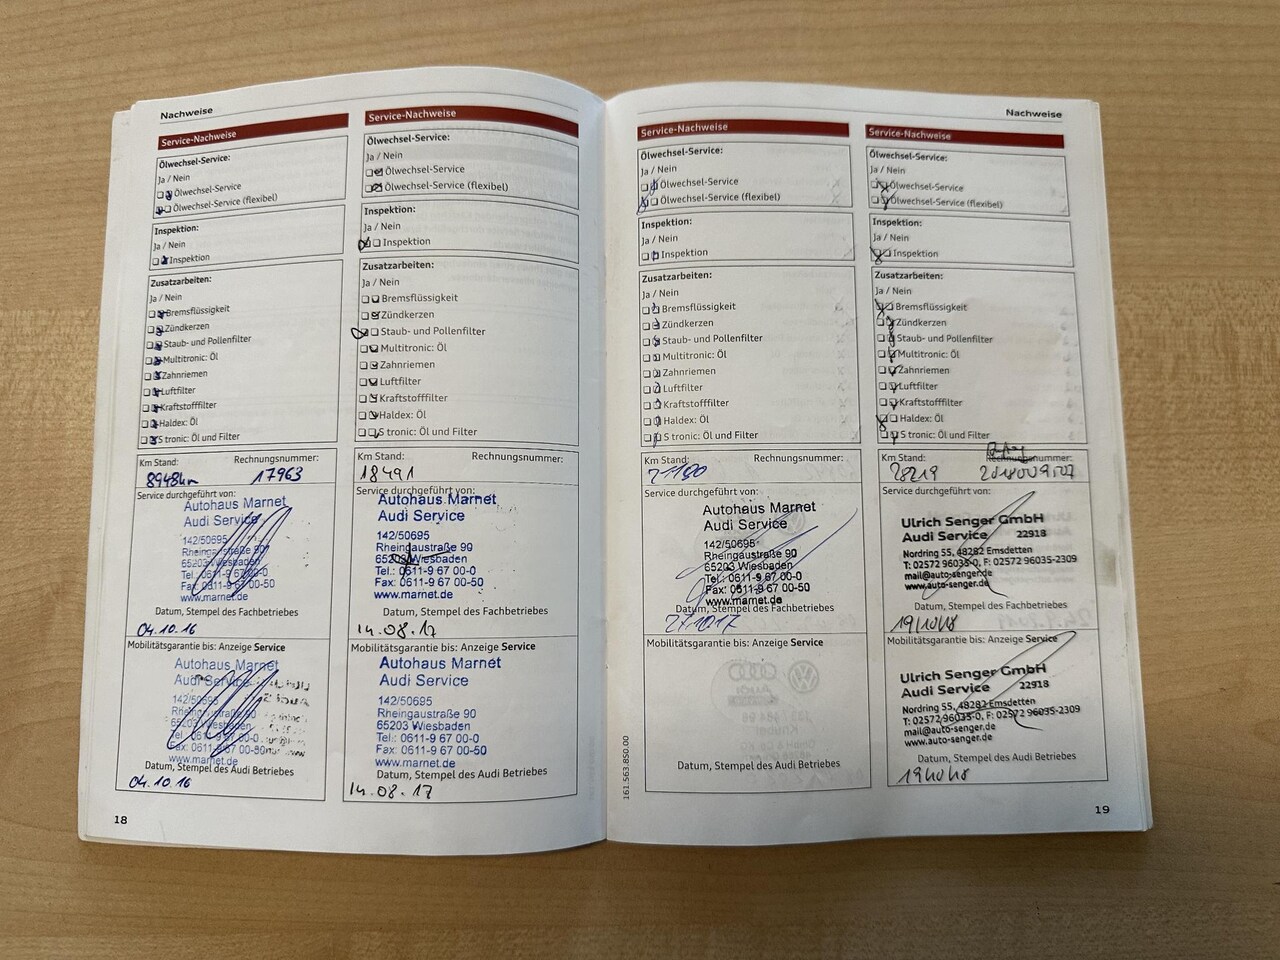 Nachweise
Service-Nachweise
Ölwechsel-Service:
Ja / Nein
Ölwechsel-Service
Ölwechsel-Service (flexibel)
Inspektion:
Ja / Nein
Inspektion
Zusatzarbeiten:
Ja / Nein
Bremsflüssigkeit
Zündkerzen
Staub- und Pollenfilter
Multitronic: Öl
Zahnriemen
Luftfilter
Kraftstofffilter
Haldex: Öl
S tronic: Öl und Filter
Km Stand: Rechnungsnummer:
8948km 17963
Service durchgeführt von:
Autohaus Marnet
Audi Service
142/50695
Rheingaustraße 90
65203 Wiesbaden
Tel.: 0611-9 67 00-0
Fax: 0611-9 67 00-50
www.marnet.de
Datum, Stempel des Fachbetriebes
04.10.16
Mobilitätsgarantie bis: Anzeige Service
Autohaus Marnet
Audi Service
142/50695
Rheingaustraße 90
65203 Wiesbaden
Tel.: 0611-9 67 00-0
Fax: 0611-9 67 00-50
www.marnet.de
Datum, Stempel des Audi Betriebes
04.10.16
18
Service-Nachweise
Ölwechsel-Service:
Ja / Nein
Ölwechsel-Service
Ölwechsel-Service (flexibel)
Inspektion:
Ja / Nein
Inspektion
Zusatzarbeiten:
Ja / Nein
Bremsflüssigkeit
Zündkerzen
Staub- und Pollenfilter
Multitronic: Öl
Zahnriemen
Luftfilter
Kraftstofffilter
Haldex: Öl
S tronic: Öl und Filter
Km Stand: Rechnungsnummer:
18491
Service durchgeführt von:
Autohaus Marnet
Audi Service
142/50695
Rheingaustraße 90
65203 Wiesbaden
Tel.: 0611-9 67 00-0
Fax: 0611-9 67 00-50
www.marnet.de
Datum, Stempel des Fachbetriebes
14.08.17
Mobilitätsgarantie bis: Anzeige Service
Autohaus Marnet
Audi Service
142/50695
Rheingaustraße 90
65203 Wiesbaden
Tel.: 0611-9 67 00-0
Fax: 0611-9 67 00-50
www.marnet.de
Datum, Stempel des Audi Betriebes
14.08.17
Service-Nachweise
Ölwechsel-Service:
Ja / Nein
Ölwechsel-Service
Ölwechsel-Service (flexibel)
Inspektion:
Ja / Nein
Inspektion
Zusatzarbeiten:
Ja / Nein
Bremsflüssigkeit
Zündkerzen
Staub- und Pollenfilter
Multitronic: Öl
Zahnriemen
Luftfilter
Kraftstofffilter
Haldex: Öl
S tronic: Öl und Filter
Km Stand: Rechnungsnummer:
Service durchgeführt von:
Autohaus Marnet
Audi Service
142/50695
Rheingaustraße 90
65203 Wiesbaden
Tel.: 0611-9 67 00-0
Fax: 0611-9 67 00-50
www.marnet.de
Datum, Stempel des Fachbetriebes
Mobilitätsgarantie bis: Anzeige Service
Datum, Stempel des Audi Betriebes
161.563.850.00
Nachweise
Service-Nachweise
Ölwechsel-Service:
Ja / Nein
Ölwechsel-Service
Ölwechsel-Service (flexibel)
Inspektion:
Ja / Nein
Inspektion
Zusatzarbeiten:
Ja / Nein
Bremsflüssigkeit
Zündkerzen
Staub- und Pollenfilter
Multitronic: Öl
Zahnriemen
Luftfilter
Kraftstofffilter
Haldex: Öl
S tronic: Öl und Filter
Km Stand: Rechnungsnummer:
28219
Service durchgeführt von:
Ulrich Senger GmbH
Audi Service 22918
Nordring 55, 48282 Emsdetten
T: 02572 96035-0, F: 02572 96035-2309
mail@auto-senger.de
www.auto-senger.de
Datum, Stempel des Fachbetriebes
19/10/18
Mobilitätsgarantie bis: Anzeige Service
Ulrich Senger GmbH
Audi Service 22918
Nordring 55, 48282 Emsdetten
T: 02572 96035-0, F: 02572 96035-2309
mail@auto-senger.de
www.auto-senger.de
Datum, Stempel des Audi Betriebes
19/10/18
19